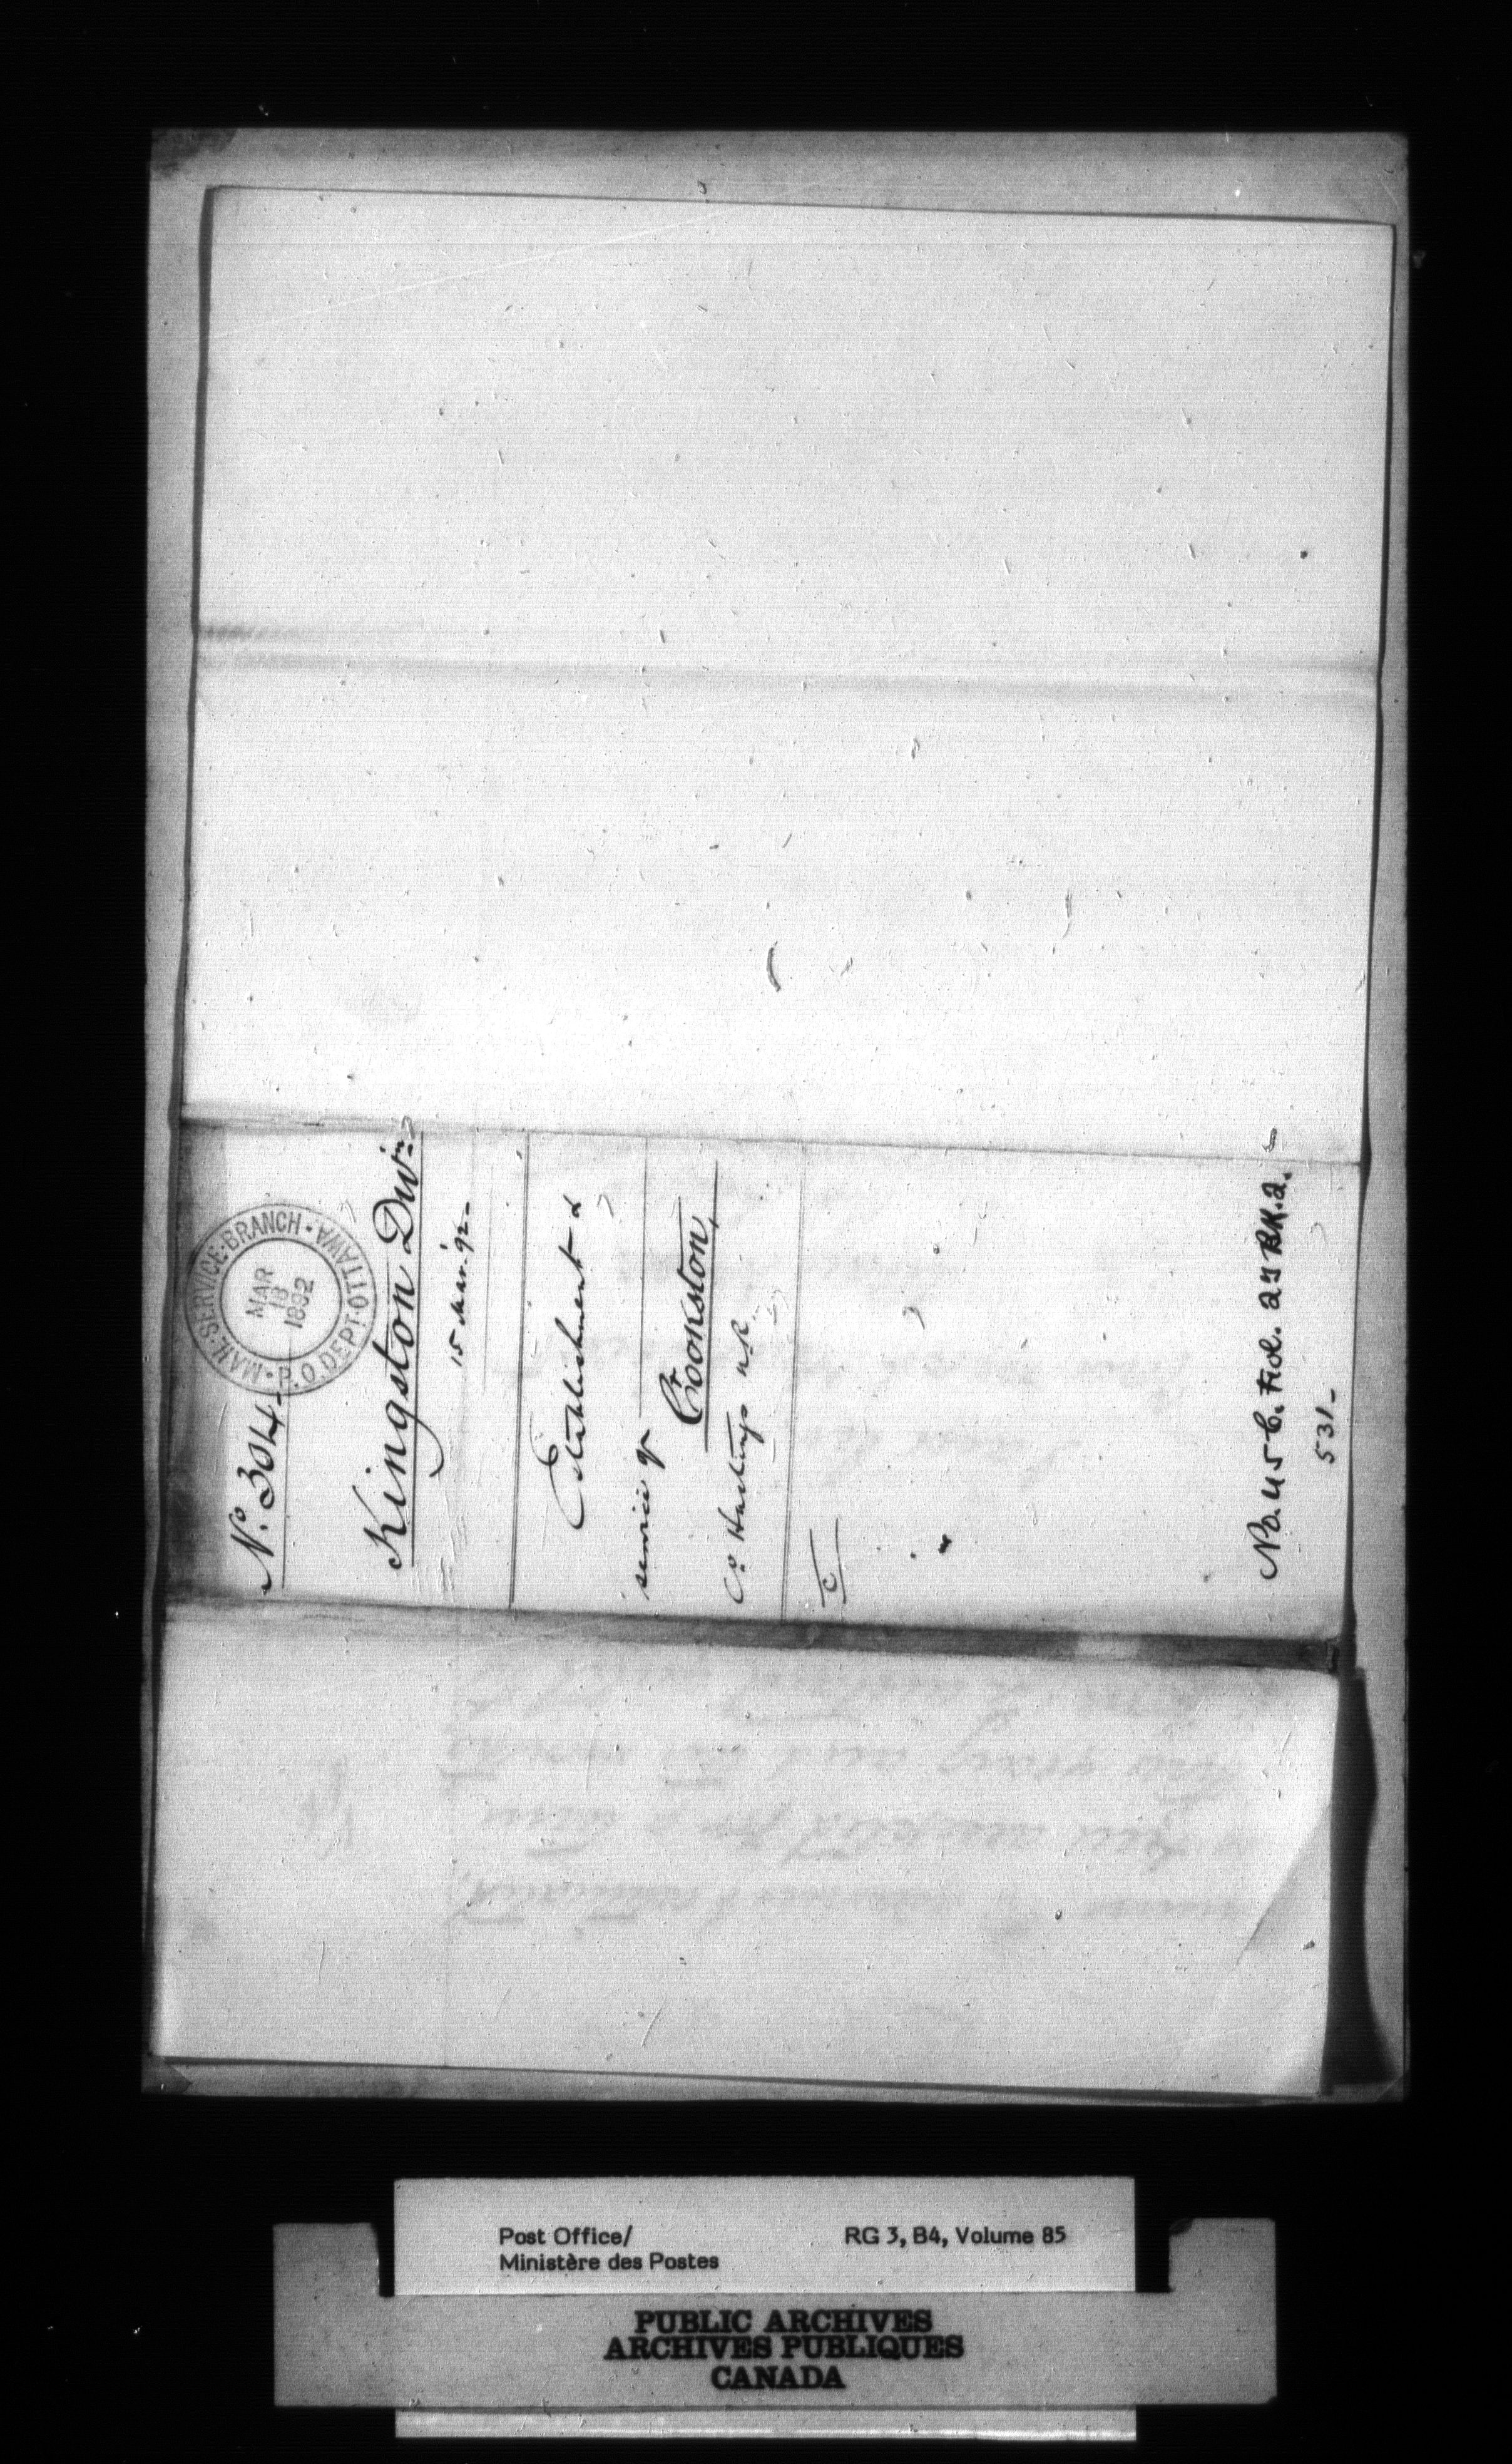 No. 304-
MAIL-SERVICE-BRANCH · OTTAWA · P.O. DEPT.
MAR
18
1892
Kingston Divn.
15 Mar. '92-
Establishment &
service of
Crookston,
Co. Hastings N.R.
C
No. 456. Fiol. 27 BK. 2.
531-
Post Office/
Ministère des Postes
RG 3, B4, Volume 85
PUBLIC ARCHIVES
ARCHIVES PUBLIQUES
CANADA